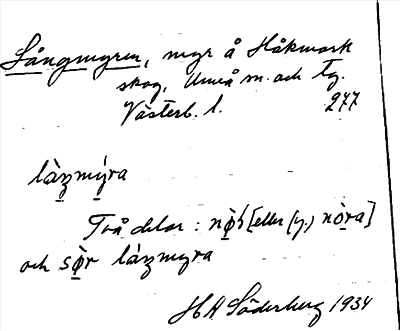 Långmyren, myr å Håkmark
skog, Umeå m. och tg.
Västerb. l. 277
làŋmýra
Två delar: nø̣ḷ [eller (y.) nòra]
och sø̣̀r làŋmyra
H A Söderberg 1934